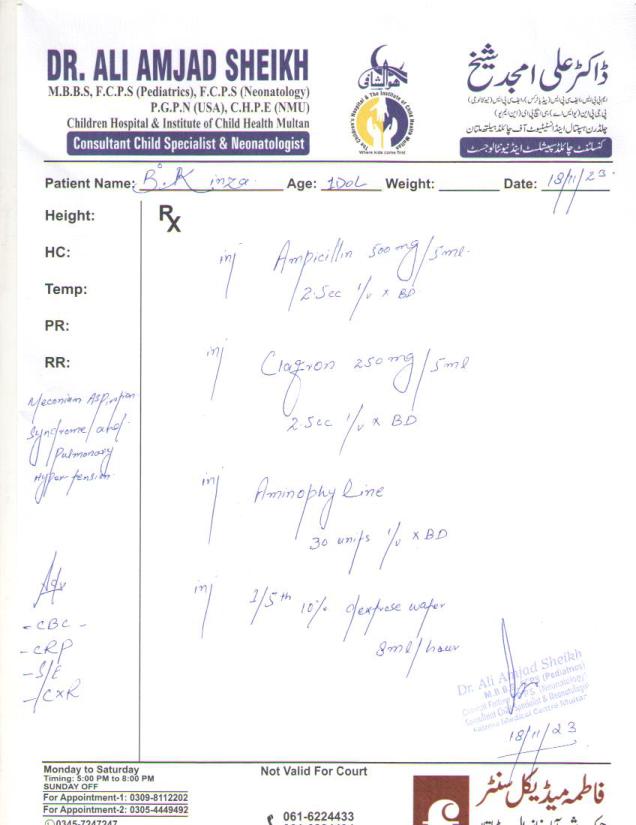 DR. ALI AMJAD SHEIKH
M.B.B.S, F.C.P.S (Pediatrics), F.C.P.S (Neonatology)
P.G.P.N (USA), C.H.P.E (NMU)
Children Hospital & Institute of Child Health Multan
Consultant Child Specialist & Neonatologist
ھوالشافی
The Children's Hospital & The Institute of Child Health Multan
Where kids come first
ڈاکٹر علی امجد شیخ
چلڈرن ہسپتال اینڈ انسٹیٹیوٹ آف چائلڈ ہیلتھ ملتان
کنسلٹنٹ چائلڈ سپیشلسٹ اینڈ نیونٹالوجسٹ
Patient Name: B° Kinza Age: 1DOL Weight: Date: 18/11/23
Height: Rx
HC: inj Ampicillin 500mg/5ml
Temp: 2.5cc I/V x BD
PR:
RR: inj Clafron 250mg/5ml
2.5cc I/V x BD
Meconium Aspiration
Syndrome and
Pulmonary
Hypertension
inj Aminophyline
30 units I/V x BD
inj 1/5th 10% dextrose water
8ml/hour
Adv
- CBC -
- CRP
- S/E
- CXR
Dr. Ali Amjad Sheikh
M.B.B.S, F.C.P.S (Pediatrics)
Consultant Child Specialist & Neonatologist
Fatima Medical Centre Multan
18/11/23
Monday to Saturday
Timing: 5:00 PM to 8:00 PM
SUNDAY OFF
For Appointment-1: 0309-8112202
For Appointment-2: 0305-4449492
0345-7247247
Not Valid For Court
061-6224433
فاطمہ میڈیکل سنٹر